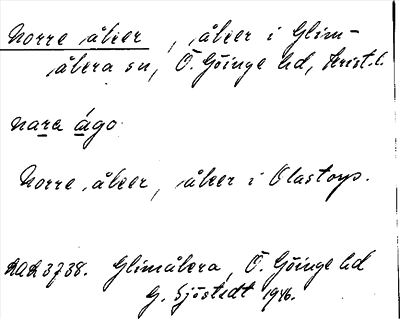 Norre åker, åker i Glim-
åkra sn, Ö. Göinge hd, Krist. l.
nara ágo
Norre åker, åker i Olastorp.
2022 3738. Glimåkra, Ö. Göinge hd
G. Sjöstedt 1946.